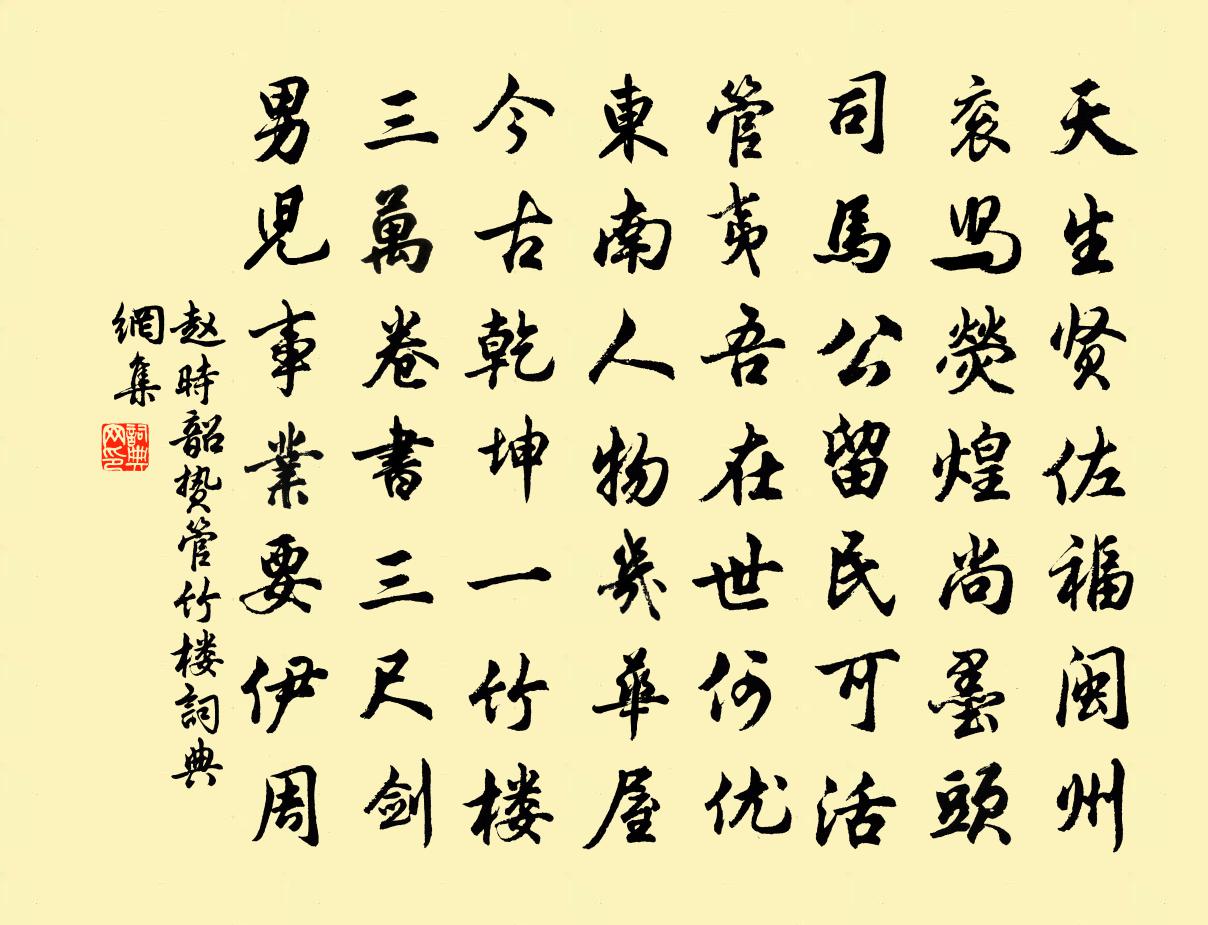 天生贤佐福闽州
衮舄熒煌尚墨頭
司馬公留民可活
管夷吾在世何优
東南人物幾華屋
今古乾坤一竹楼
三萬卷書三尺剑
男児事業要伊周
赵時韶贽管竹楼詞典
網集
詞典网印